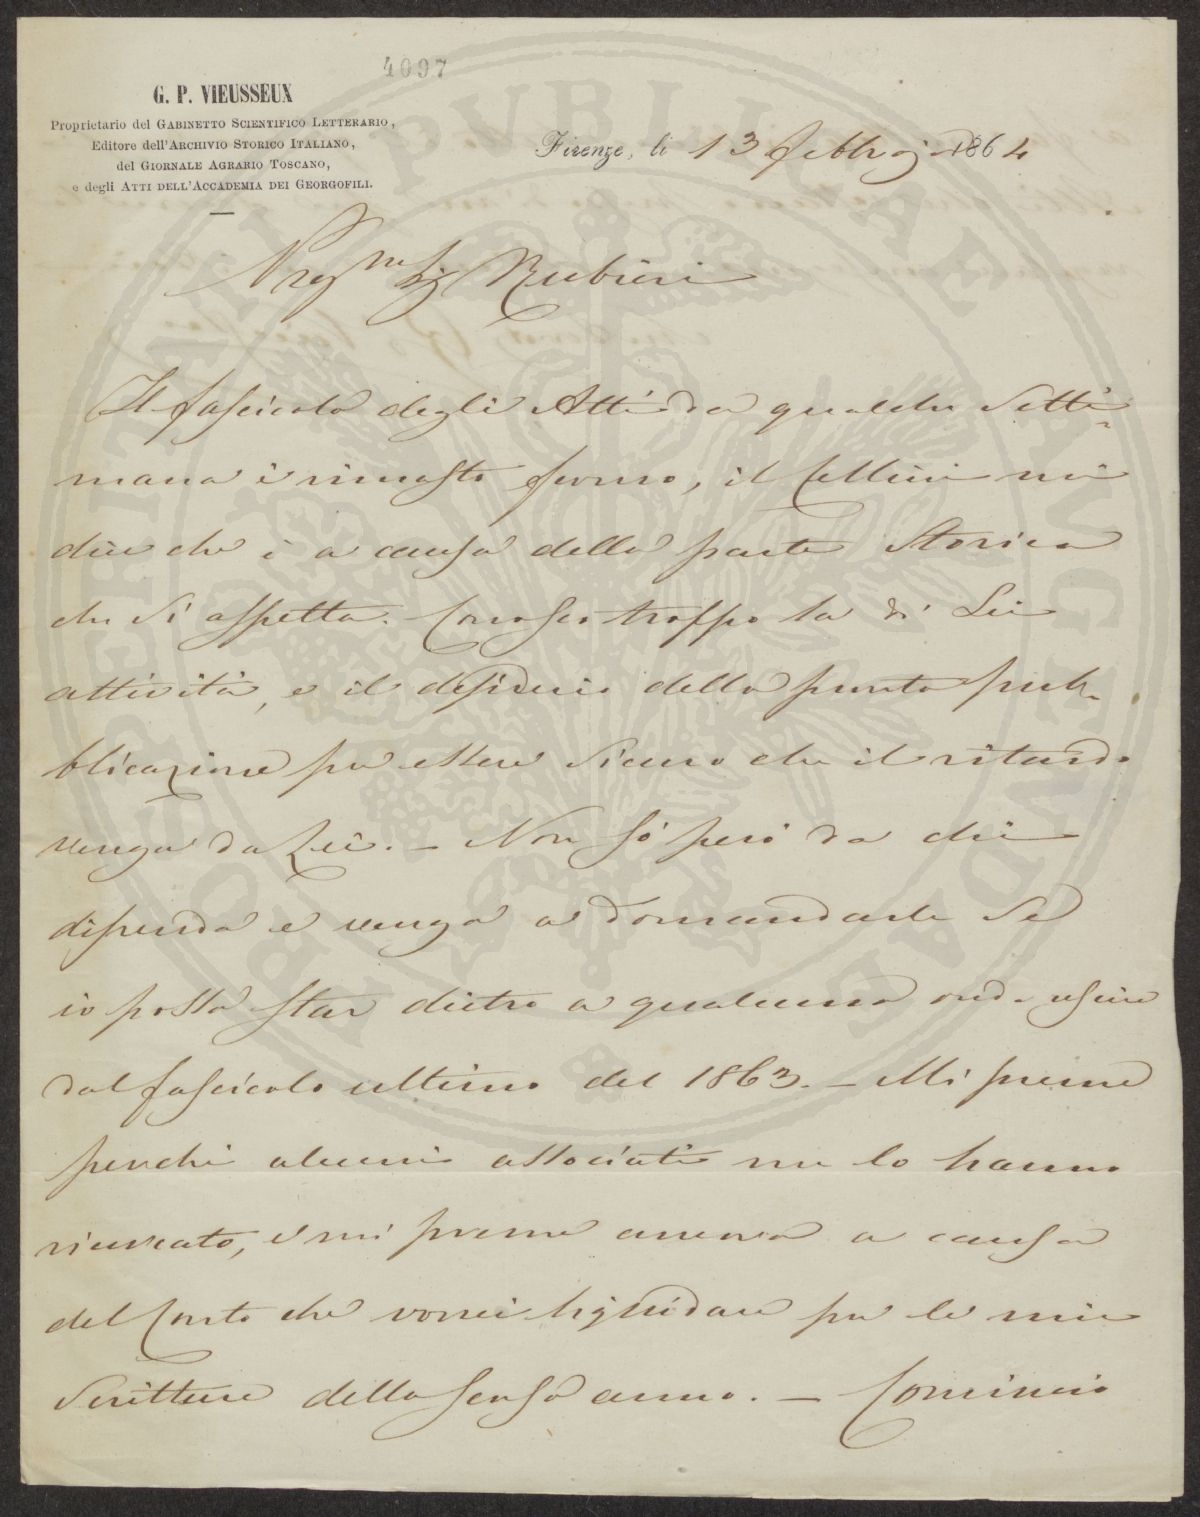 4097
G. P. VIEUSSEUX
Proprietario del GABINETTO SCIENTIFICO LETTERARIO,
Editore dell'ARCHIVIO STORICO ITALIANO,
del GIORNALE AGRARIO TOSCANO,
e degli ATTI DELL'ACCADEMIA DEI GEORGOFILI.
Firenze, li 13 febbrajo 1864
Preg.mo Sig. Rubieri
Il fascicolo degli Atti da qualche setti-
mana è rimasto fermo, il Cellini mi
dice che è a causa della parte Storica
che si aspetta. Conosco troppo la di Lei
attività, e il desiderio della pronta pub-
blicazione per essere sicuro che il ritardo
venga da Lei. — Non só però da chi
dipenda e vengo a domandarle se
io possa star dietro a qualcuno onde uscire
dal fascicolo ultimo del 1863. — Mi preme
perchè alcuni associati me lo hanno
ricercato, e mi preme ancora a causa
del Conto che vorrei liquidare per le mie
Scritture dello scorso anno. — Comincio